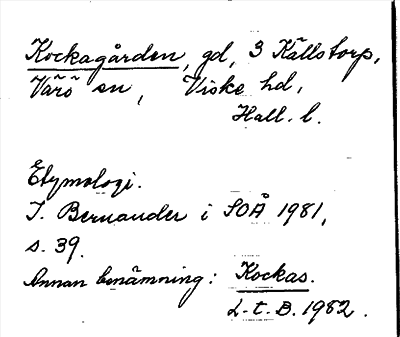 Kockagården, gd, 3 Källstorp,
Värö sn, Viske hd,
Hall. l.
Etymologi.
I. Bernander i SOÅ 1981,
s. 39.
Annan benämning: Kockas.
L-t. B. 1982.